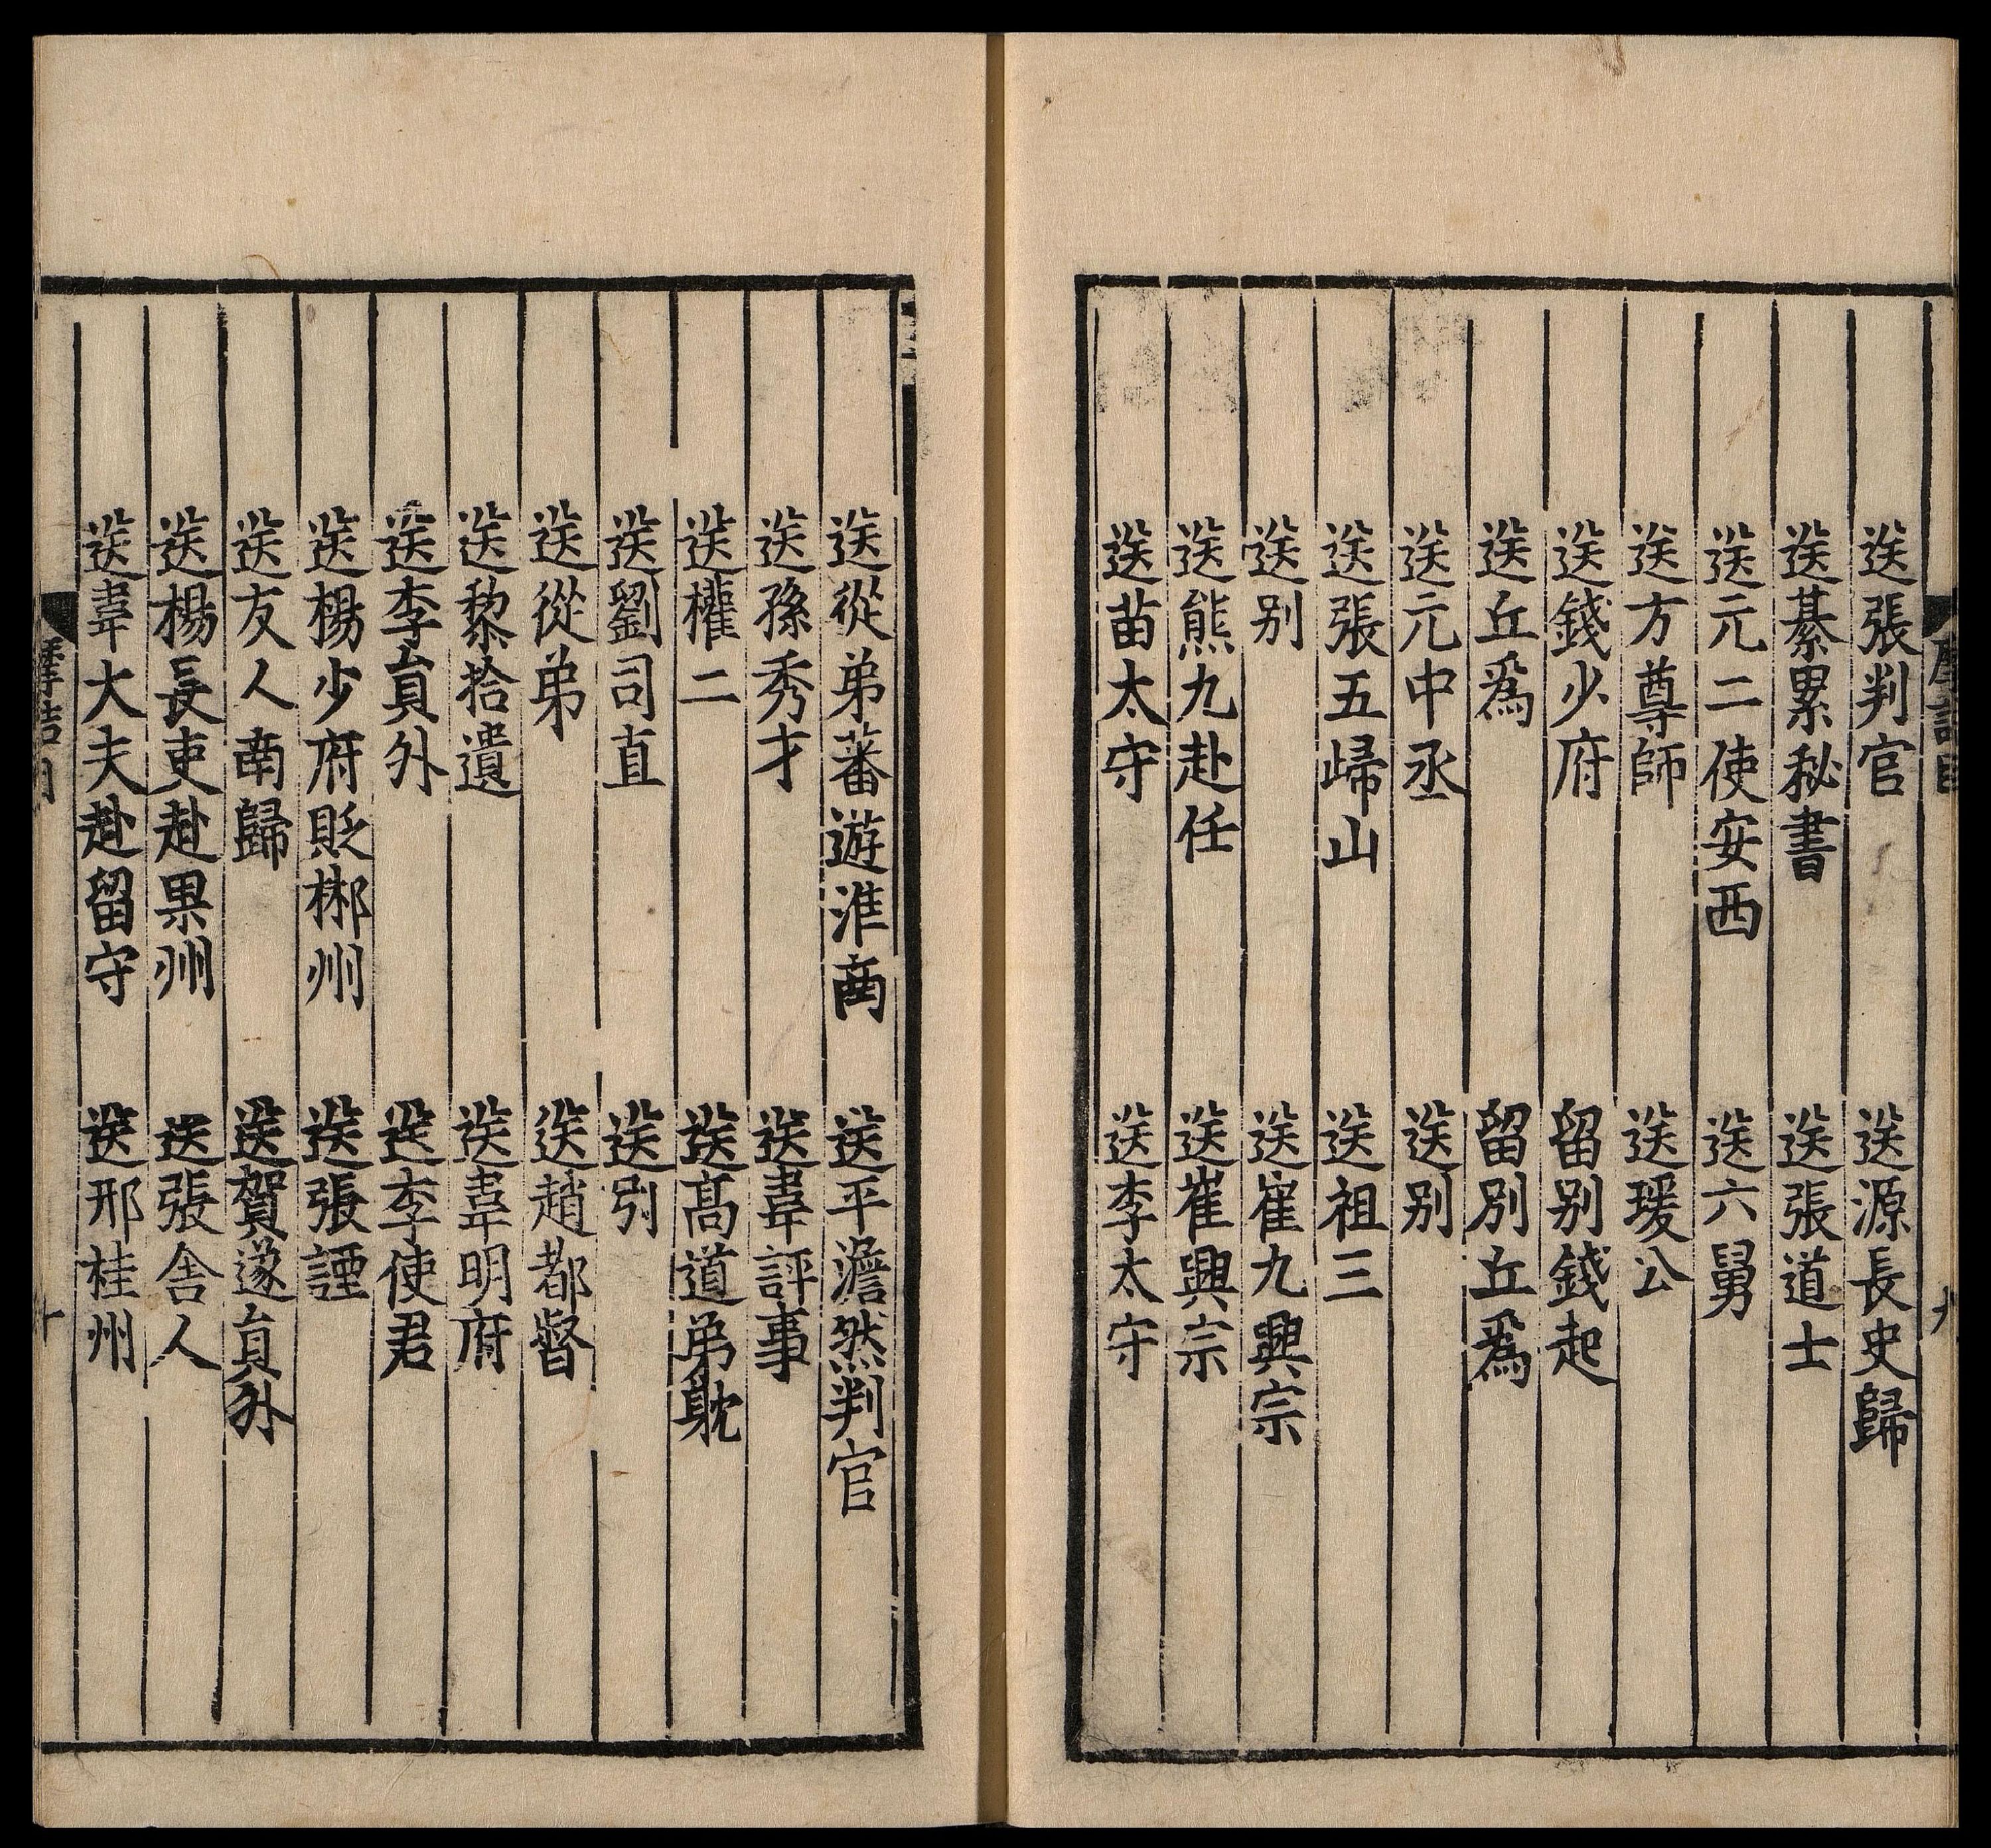 送張判官　送源長史歸
送綦累秘書　送張道士
送元二使安西　送六舅
送方尊師　送瑗公
送錢少府　留别錢起
送丘爲　留别丘爲
送元中丞　送别
送張五歸山　送祖三
送别　送崔九興宗
送熊九赴任　送崔興宗
送苗太守　送李太守
送從弟蕃遊淮南　送平澹然判官
送孫秀才　送韋評事
送權二　送高道弟躭
送劉司直　送别
送從弟　送趙都督
送黎拾遺　送韋明府
送李貟外　送李使君
送楊少府貶郴州　送張諲
送友人南歸　送賀遂貟外
送楊長吏赴果州　送張舍人
送韋大夫赴留守　送邢桂州